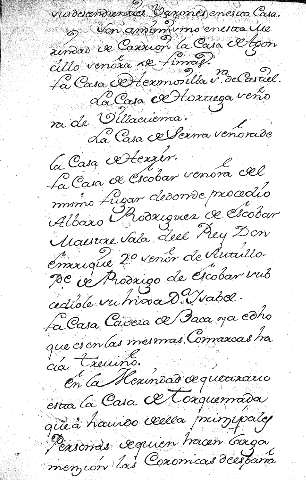 sus descendientes Varones en esta Casa.
Son asimismo en esta Me
rindad de Carrion la Casa de Agon
cillo señora de
La Casa de Hermosilla
La Casa de Hortega seño
ra de Villacuema.
La Casa de Serna señora de
la Casa de Herrer.
La Casa de Escobar señora del
mismo lugar de donde procedio
Albaro Rodriguez de Escobar
Maestre Sala del Rey Don
Enrrique 2º señor de Rutillo
Pe de Rodrigo de Escobar sub
cediole su hixa Da Isabel.
La Casa Caveza de Baca ya dho
que es en las mesmas Comarcas ha
cia Treviño.
En la Merindad de
esta la Casa de Torquemada
que à havido de ella prinzipales
Personas de quien hacen larga
menzion las Coronicas de españa